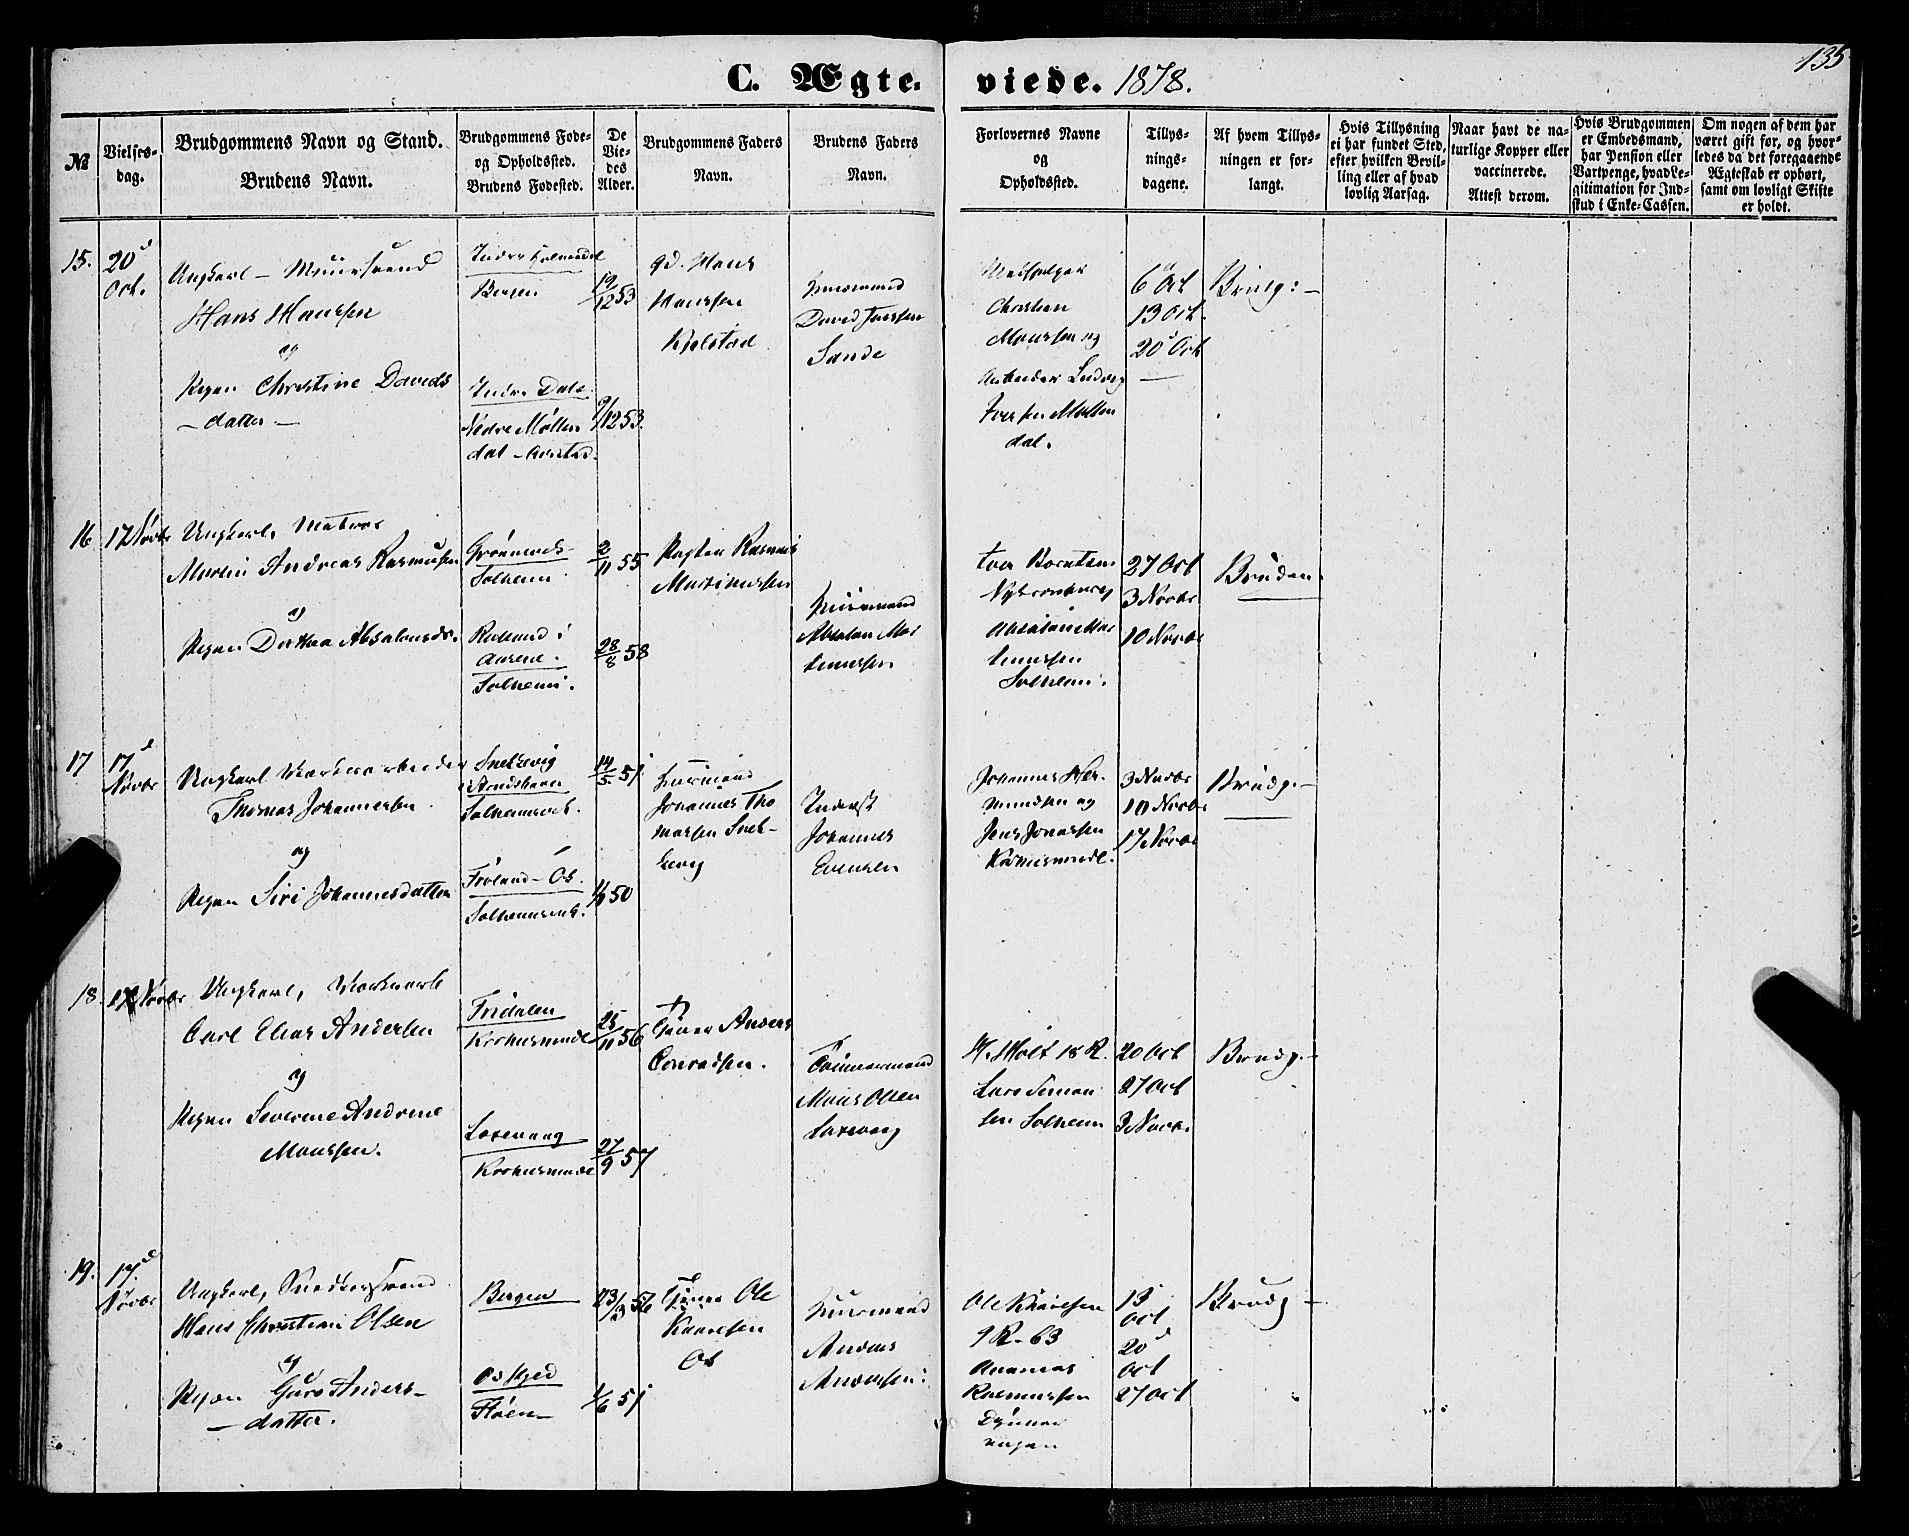 135
C. Ægte. viede. 1878.
№
Vielses-
dag.
Brudgommens Navn og Stand.
Brudens Navn.
Brudgommens Føde-
og Opholdssted.
Brudens Fødested.
De
Vie-
des
Alder.
Brudgommens Faders
Navn.
Brudens Faders
Navn.
Forlovernes Navne
og
Opholdssted.
Tillys-
nings-
dagene.
Af hvem Tillys-
ningen er for-
langt.
Hvis Tillysning
ei har fundet Sted,
efter hvilken Bevil-
ling eller af hvad
lovlig Aarsag.
Naar havt de na-
turlige Kopper eller
vaccinerede.
Attest derom.
Hvis Brudgommen
er Embedsmand,
har Pension eller
Vartpenge, hvad Le-
gitimation for Ind-
skud i Enke-Cassen.
Om nogen af dem har
været gift før, og hvor-
ledes da det foregaaende
Ægteskab er ophørt,
samt om lovligt Skifte
er holdt.
15.
20
Oct.
Ungkarl – Muursvend
Hans Hanssen
og
Pigen Christine Davids
– datter –
Indre Holmedal
Bergen
Indre Dale
Nedre Møllen
dal – Aarstad.
19/12 53
9/12 53.
gd. Hans
Hanssen
Kjelstad
Huusmand
David
Sande
Christen
Monssen og
Arbeider Ludvig
Iversen Møllen
dal.
6 Oct
13 Oct.
20 Oct
Brudg: –
16
17 Novbr
Ungkarl, Matros
Martin Andreas Rasmussen
og
Pigen Dorthea Absalonsdr.
Solheim.
Solheim.
2/11 55
28/8 58
Rasmus
Martinussen
Huusmand
Absalon Mar
tinussen
Absalon Mar
tinussen
Solheim.
27 Oct
3 Novbr
10 Novbr
Bruden.
17
17
Novbr
Ungkarl Værksarbeider
Thomas Johannessen
og
Pigen Siri Johannesdatter
Snekkevig
Solheimsvik.
Frøland – Os.
Solheimsvik.
14/5 51
50
Huusmand
Johannes Tho
massen Snek-
kevig
Inderst
Johannes
Evensen
Johannes Her-
mundsen og
Jens Jonassen
3 Novbr
10 Novbr
17 Novbr
Brudg. –
18.
17 Novbr
Ungkarl, Værksarb
Carl Elias Andersen
og
Pigen Severine Andrine
Monssen.
Fridalen
Laxevaag
25/11 56
27/9 57
Anders
Conradsen.
Tømmermand
Mons Olsen
Laxevaag
Lars Simon
sen Solheim
20 Oct
27 Oct
3 Novbr.
Brudg. –
19.
17
Novbr
Ungkarl, Snedkersvend
Hans Christian Olsen
og
Pigen Guro Anders–
– datter.
Bergen
Fløen
23/3 56
1/6 51
Ole
Knudsen
Os
Huusmand
Anders
Andersen
Ole Knudsen
9 R. 63
Rasmussen
13
Oct
20
Oct
27 Oct
Brudg –